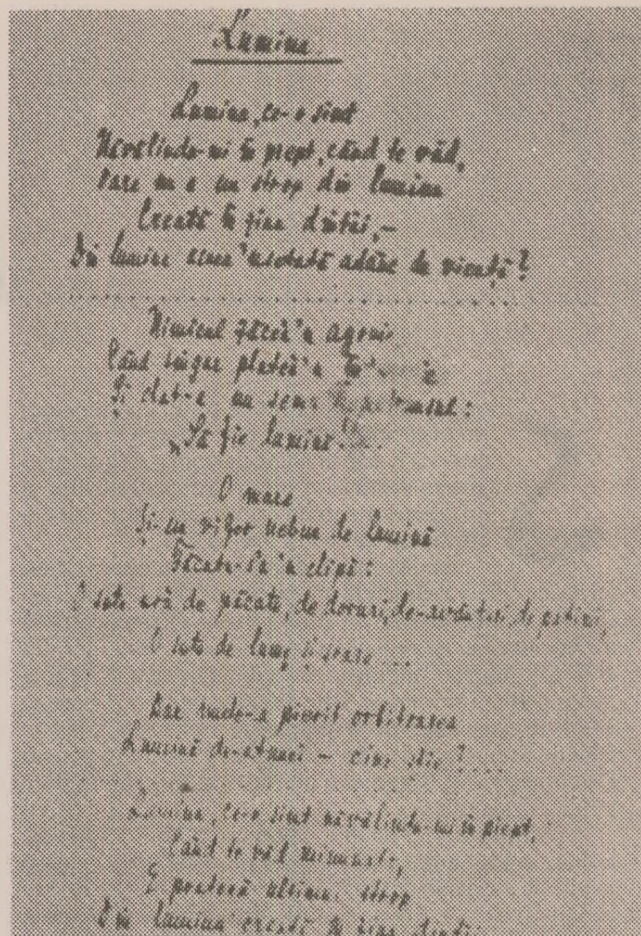 Lumina
Lumina, ce-o simt
Năvălindu-mi în piept, când te văd,
Oare nu e un strop din lumina
Creată în ziua dintâi,—
Din lumina aceea 'nsetată adânc de vieață?
Nimicul zăcea 'n agonie
Când singur plutea 'n
Și dat-a un semn Nepătrunsul:
„Să fie lumină!"...
O mare
Și un vifor nebun de lumină
Făcutu-s'a 'n clipă:
O sete era de păcate, de doruri, de-avânturi, de patimi,
O sete de lume și soare...
Dar unde-a pierit orbitoarea
Lumină de-atunci – cine știe?...
Lumina, ce-o simt năvălindu-mi în piept,
Când te văd minunato,
E poate că ultimul strop
Din lumina creată în ziua dintâi.